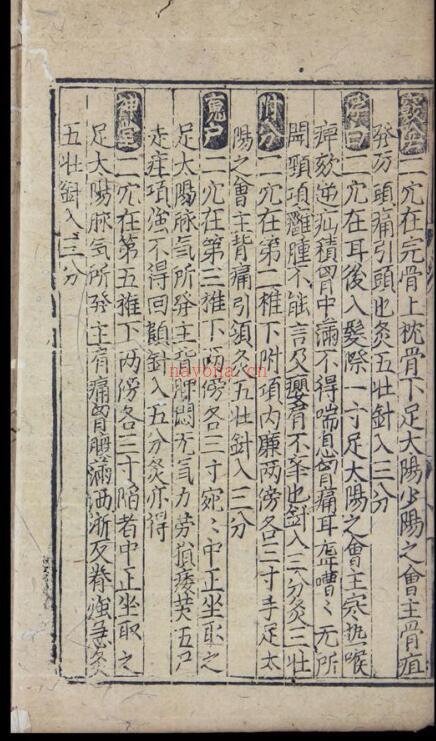 竅会二穴在完骨上枕骨下足太陽少陽之會主骨疽
發厉頭痛引頭也灸五壮針入三分
浮白二穴在耳後入髮際一寸足太陽之會主寒熱喉
痺欬逆疝積胷中滿不得喘息胷痛耳聾嘈〻无所
聞頸項癰腫不能言及癭肩不举也針入三分灸三壮
附分二穴在第二椎下附項内廉两傍各三寸手足太
陽之會主背痛引頭灸五壮針入三分
魂户二穴在第三椎下两傍各三寸宛〻中正坐取之
足太陽脉氣所發主背胛悶无氣力劳損痿黄五尸
走疰項強不得回顧針入五分灸亦得
神堂二穴在第五椎下两傍各三寸陷者中正坐取之
足太陽脉氣所發主肩痛胷腹滿洒淅反脊強急灸
五壮針入三分
nayona.cn